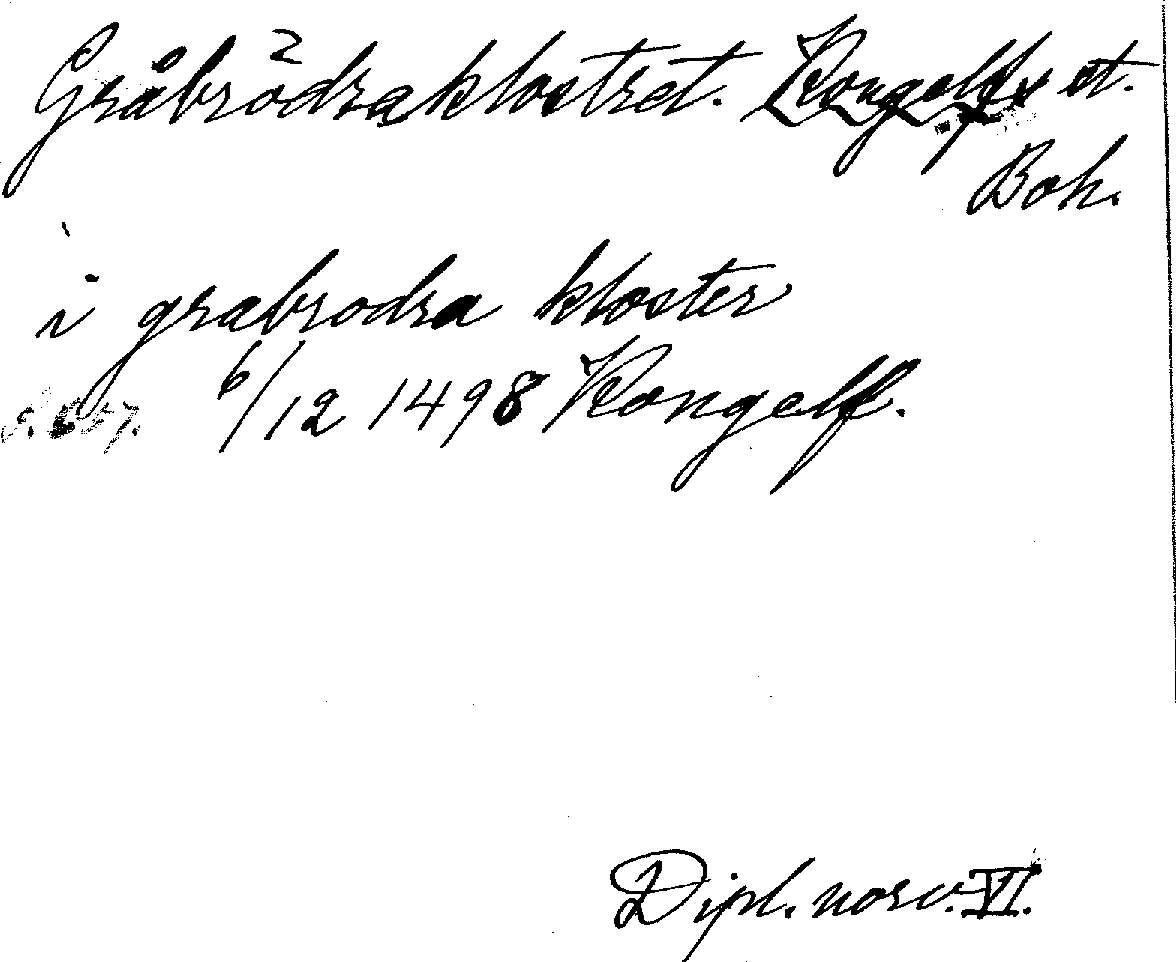 Gråbrödraklostret. Kongelfs st.
Boh.
i grabrodra kloster
6/12 1498 Kongelf.
Dipl. norv. VI.